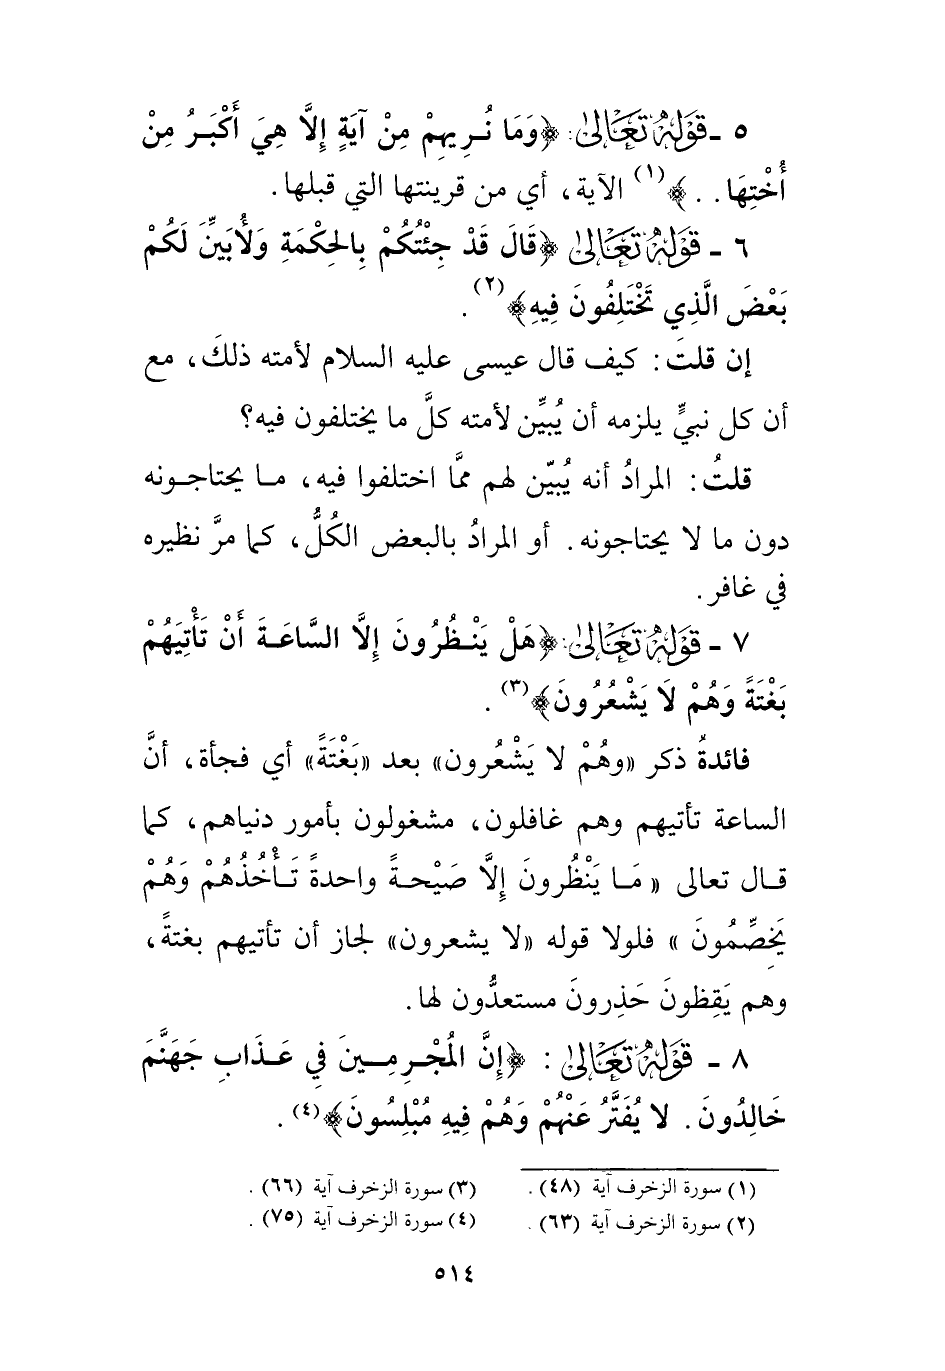 ٥ ـ قَوْلُهُ تَعَالَىٰ: ﴿وَمَا نُـرِيهِمْ مِنْ آيَةٍ إِلَّا هِيَ أَكْبَـرُ مِنْ
أُخْتِهَا. .﴾(١) الآية، أي من قرينتها التي قبلها.
٦ ـ قَوْلُهُ تَعَالَىٰ ﴿قَالَ قَدْ جِئْتُكُمْ بِالحِكْمَةِ وَلُأبَيِّنَ لَكُمْ
بَعْضَ الَّذِي تَخْتَلِفُونَ فِيهِ﴾(٢) .
إن قلتَ: كيف قال عيسى عليه السلام لأمته ذلكَ، مع
أن كل نبيٍّ يلزمه أن يُبيِّن لأمته كلَّ ما يختلفون فيه؟
قلتُ: المرادُ أنه يُبيّن لهم ممَّا اختلفوا فيه، مـا يحتاجـونه
دون ما لا يحتاجونه. أو المرادُ بالبعض الكُلُّ، كما مرَّ نظيره
في غافر.
٧ ـ قَوْلُهُ تَعَالَىٰ: ﴿هَلْ يَنْـظُرُونَ إِلَّا السَّاعَـةَ أَنْ تَأْتِيَهُمْ
بَغْتَةً وَهُمْ لَا يَشْعُرُونَ﴾(٣) .
فائدةُ ذكر «وهُمْ لا يَشْعُرون» بعد «بَغْتَةً» أي فجأة، أنَّ
الساعة تأتيهم وهم غافلون، مشغولون بأمور دنياهم، كما
قـال تعالى « مَـا يَنْظُرونَ إِلَّا صَيْحـةً واحدةً تَـأْخُذُهُمْ وَهُمْ
يَخِصِّمُونَ » فلولا قوله «لا يشعرون» لجاز أن تأتيهم بغتةً،
وهم يَقِظونَ حَذِرونَ مستعدُّون لها.
٨ ـ قَوْلُهُ تَعَالَىٰ : ﴿إِنَّ المُجْـرِمِـينَ فِي عَـذَابِ جَهَنَّمَ
خَالِدُونَ. لا يُفَتَّرُ عَنْهُمْ وَهُمْ فِيهِ مُبْلِسُونَ﴾(٤) .
(١) سورة الزخرف آية (٤٨) .
(٢) سورة الزخرف آية (٦٣) .
(٣) سورة الزخرف آية (٦٦) .
(٤) سورة الزخرف آية (٧٥) .
٥١٤